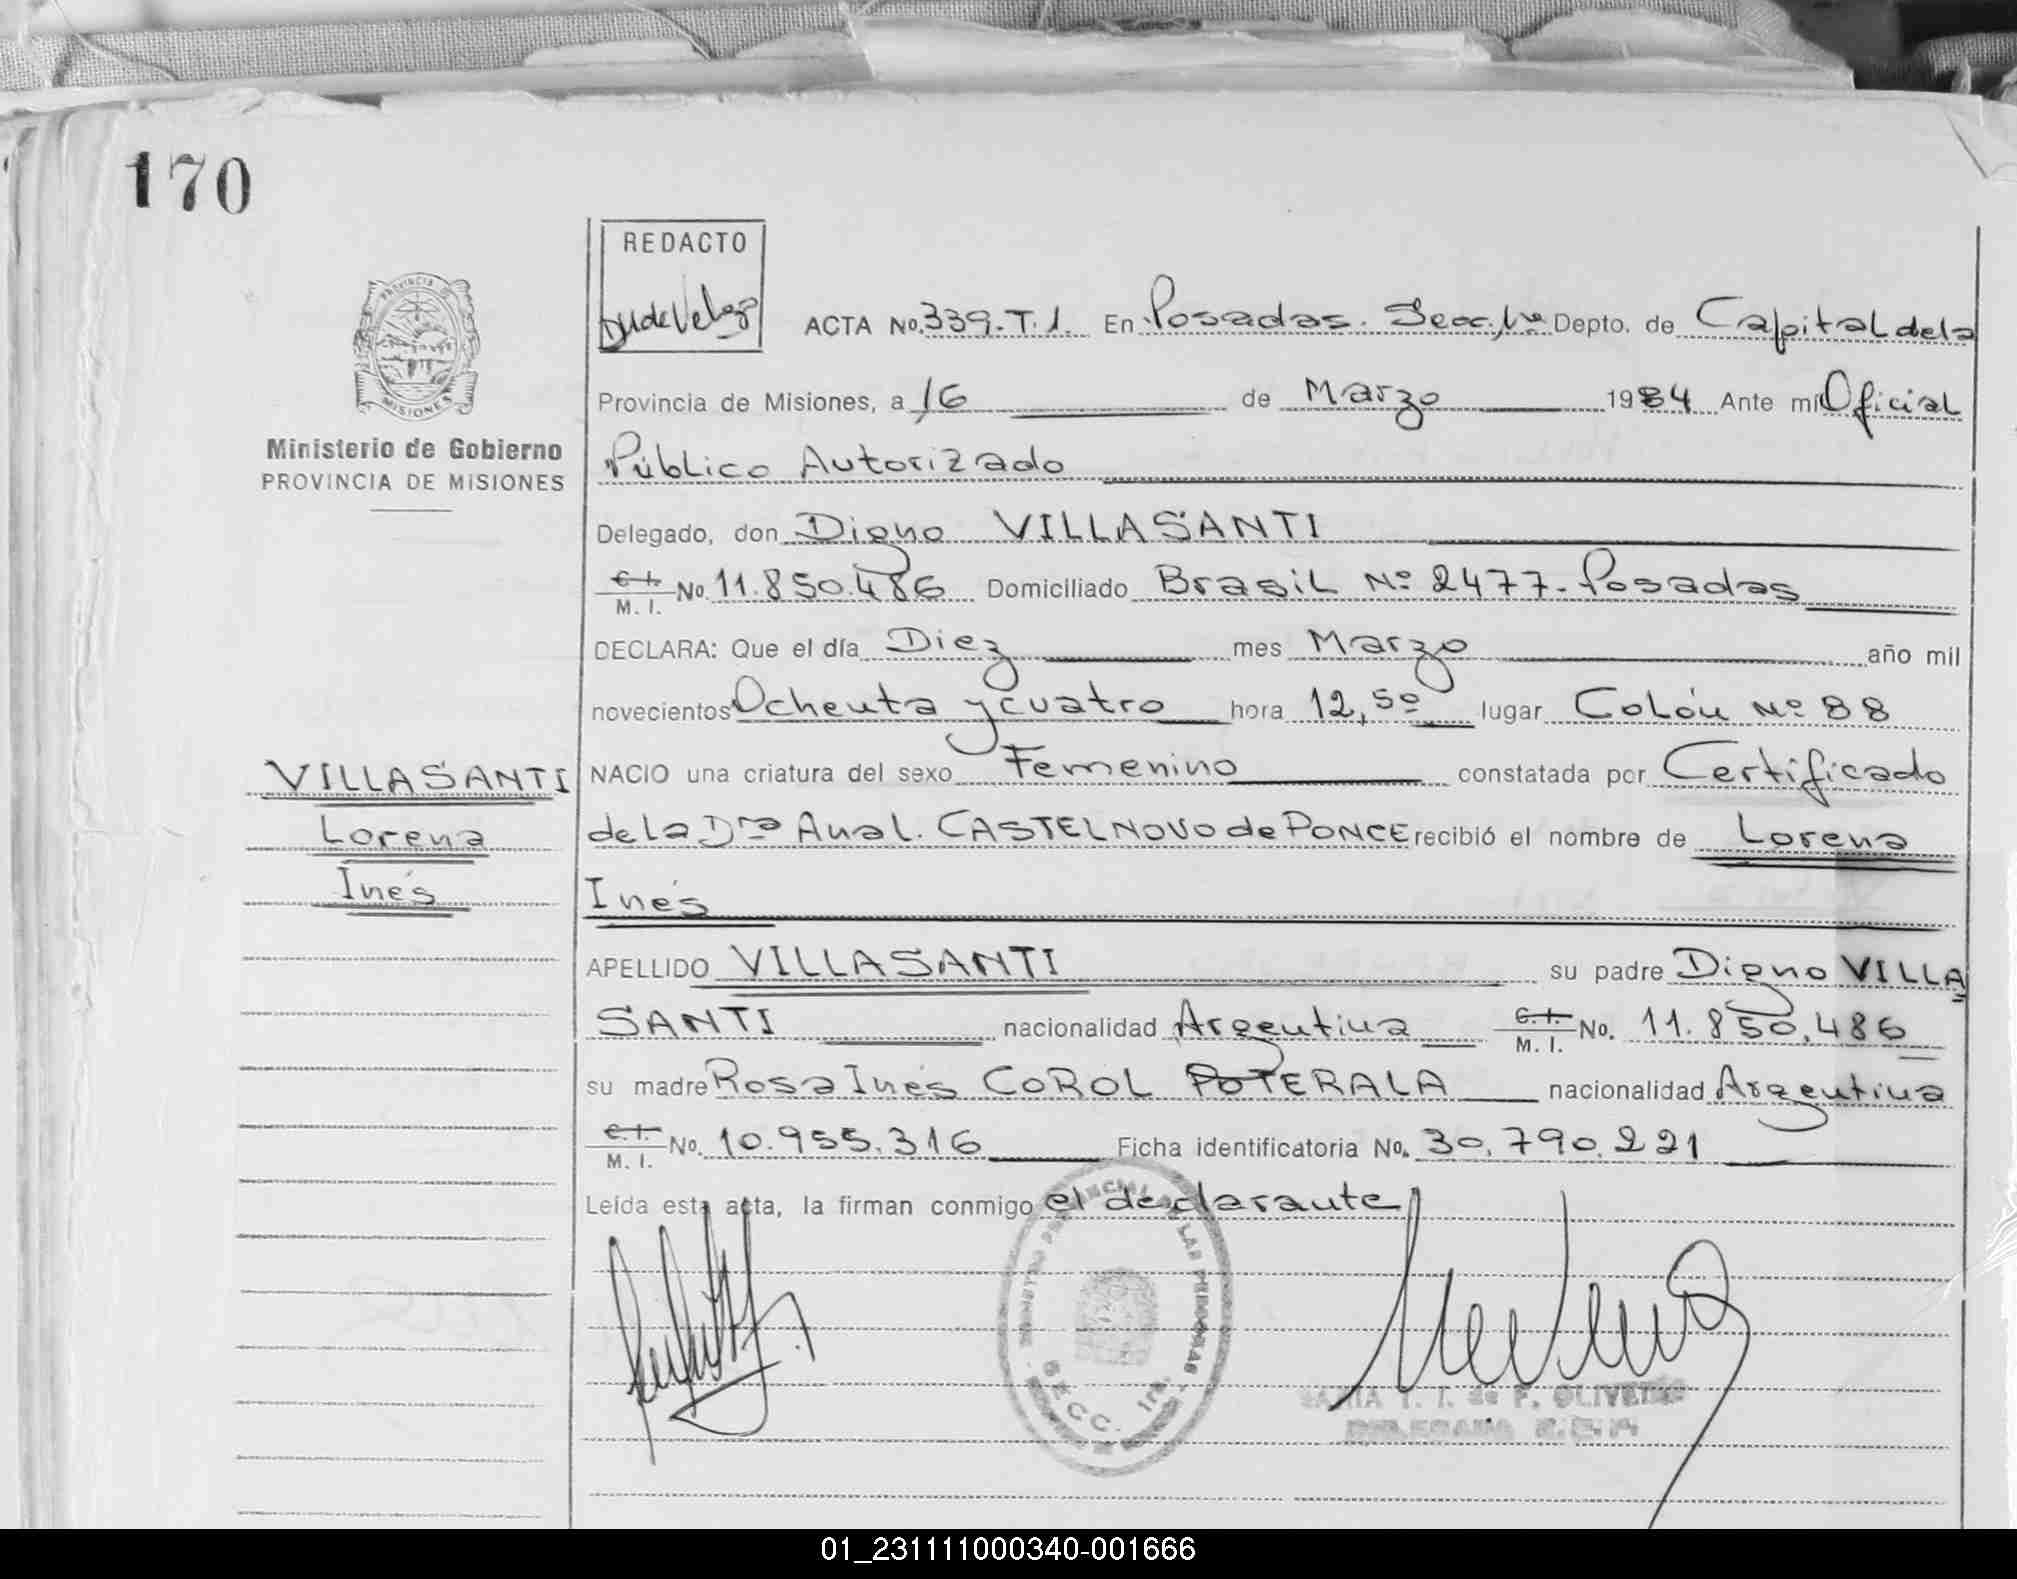 170
REDACTO
ACTA No. 339. T. 1. En Posadas. Secc. 1ra Depto. de Capital de la
PROVINCIA
MISIONES
Provincia de Misiones, a 16 de Marzo 1984 Ante mi Oficial
Ministerio de Gobierno
PROVINCIA DE MISIONES
Público Autorizado
Delegado, don Digno VILLASANTI
C. I.
M. I. No. 11.850.486 Domiciliado Brasil Nº 2477-Posadas
DECLARA: Que el día Diez mes Marzo año mil
novecientos Ochenta y cuatro hora 12,50 lugar Colón Nº 88
VILLASANTI
NACIO una criatura del sexo Femenino constatada por Certificado
Lorena
de la Dra Ana L. CASTELNOVO de PONCE recibió el nombre de Lorena
Inés
Inés
APELLIDO VILLASANTI su padre Digno VILLA
SANTI nacionalidad Argentina C. I.
M. I. No. 11.850.486
su madre Rosa Inés COROL POTERALA nacionalidad Argentina
C. I.
M. I. No. 10.955.316 Ficha identificatoria No. 30.790.221
Leída esta acta, la firman conmigo el declarante
DE LAS PERSONAS
SECC. 1ra.
OLIVEIRA
01_231111000340-001666